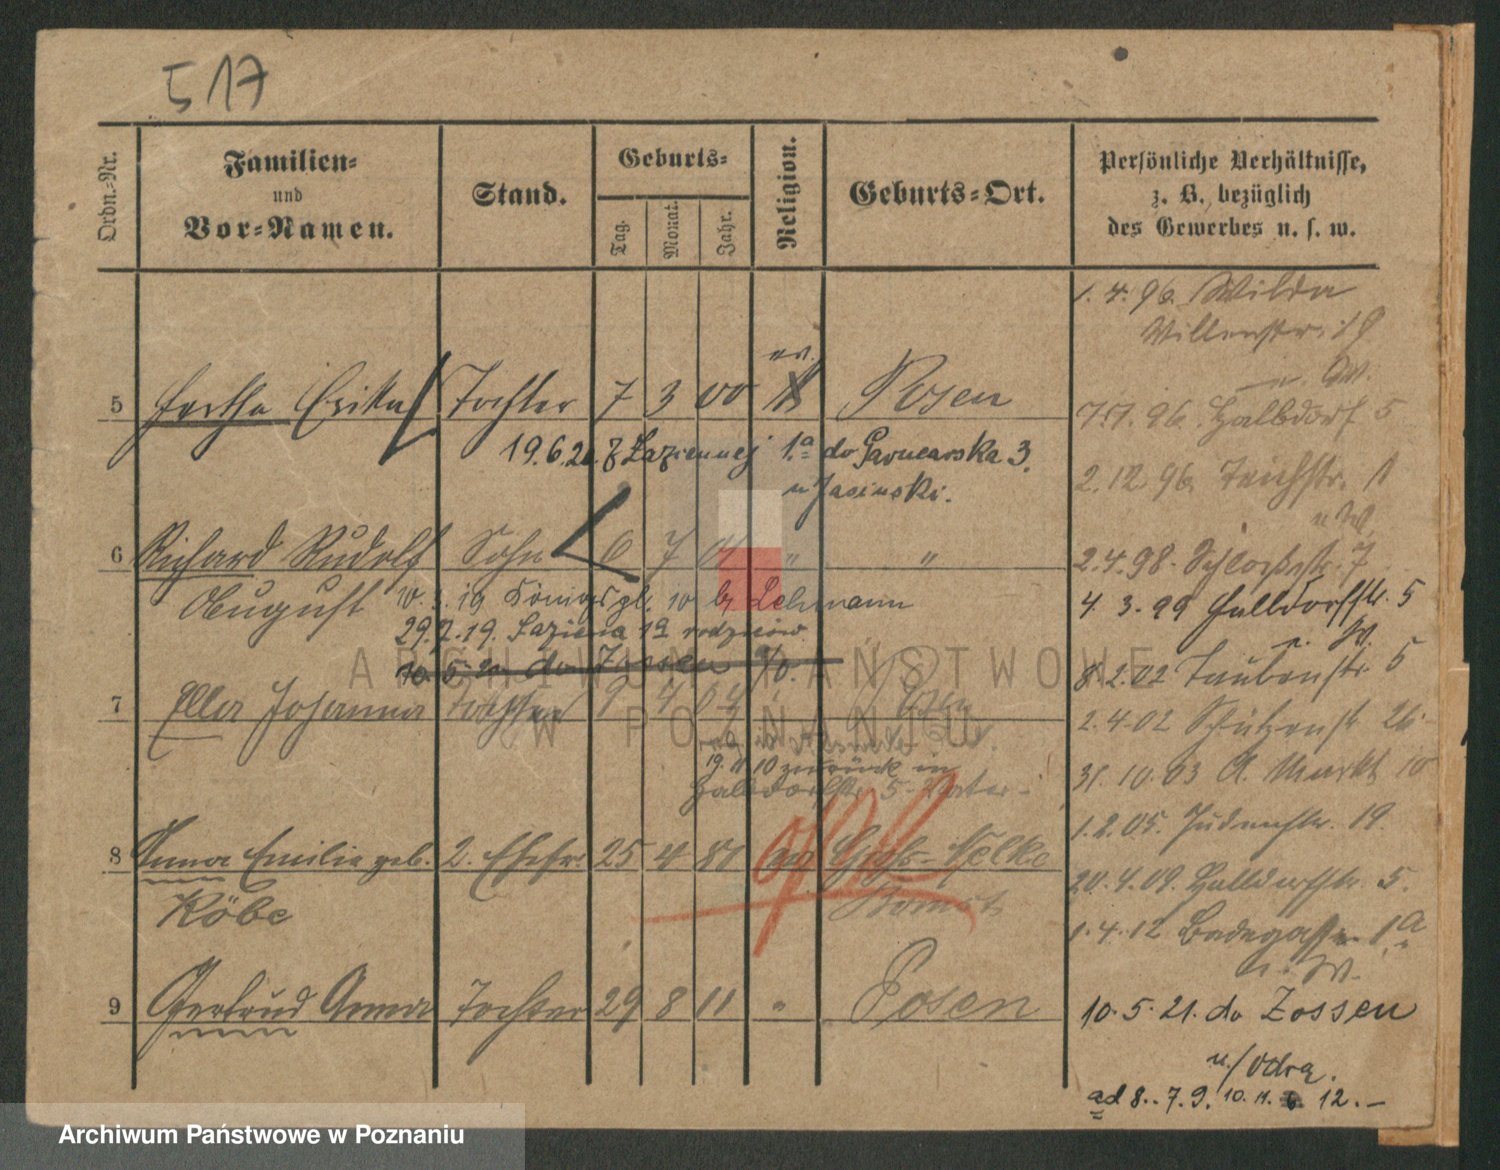 517
Ordn.-Nr.
Familien-
und
Vor-Namen.
Stand.
Geburts-
Tag.
Monat.
Jahr.
Religion.
Geburts-Ort.
Persönliche Verhältnisse,
z. B. bezüglich
des Gewerbes u. s. w.
1. 4. 96. Wilda
ev.
5 Hertha Erika Tochter 7 3 00 Posen
7.7.96. Halbdorf 5
19.6.20. z Łaziennej 1a do Garncarska 3.
u Jasinski.
2.12.96. Teichstr. 1
6 Richard Rudolf Sohn 6 7 01 " "
August
2.4.98. Schloßstr. 7
10. 3. 19 Königspl. 10 bei Lehmann
4. 3. 99 Halbdorfstr. 5
29.7.19. Łazienna 1a rodziców
10. 5. 21. do Zossen
8.2.02 Taubenstr. 5
7 Ella Johanna Tochter 9 7 04 Posen
2.4.02 Schützenstr. 26
19. 11 10 zurück in
Halbdorfstr. 5 - Vater -
31. 10. 03 A. Markt 10
1.2.05. Judenstr. 19.
8 Anna Emilie geb. 2. Ehefr. 25 4 81 ev Groß-Nelke
Köbe
Bomst
20.4.09. Halbdorfstr. 5.
1.4.12 Badegasse 1a
9 Gertrud Anna Tochter 29 8 11 " Posen
10. 5. 21. do Zossen
n./Odrą.
ad 8.. 7. 9. 10. 11. 12. -
ARCHIWUM PAŃSTWOWE
W POZNANIU
Archiwum Państwowe w Poznaniu